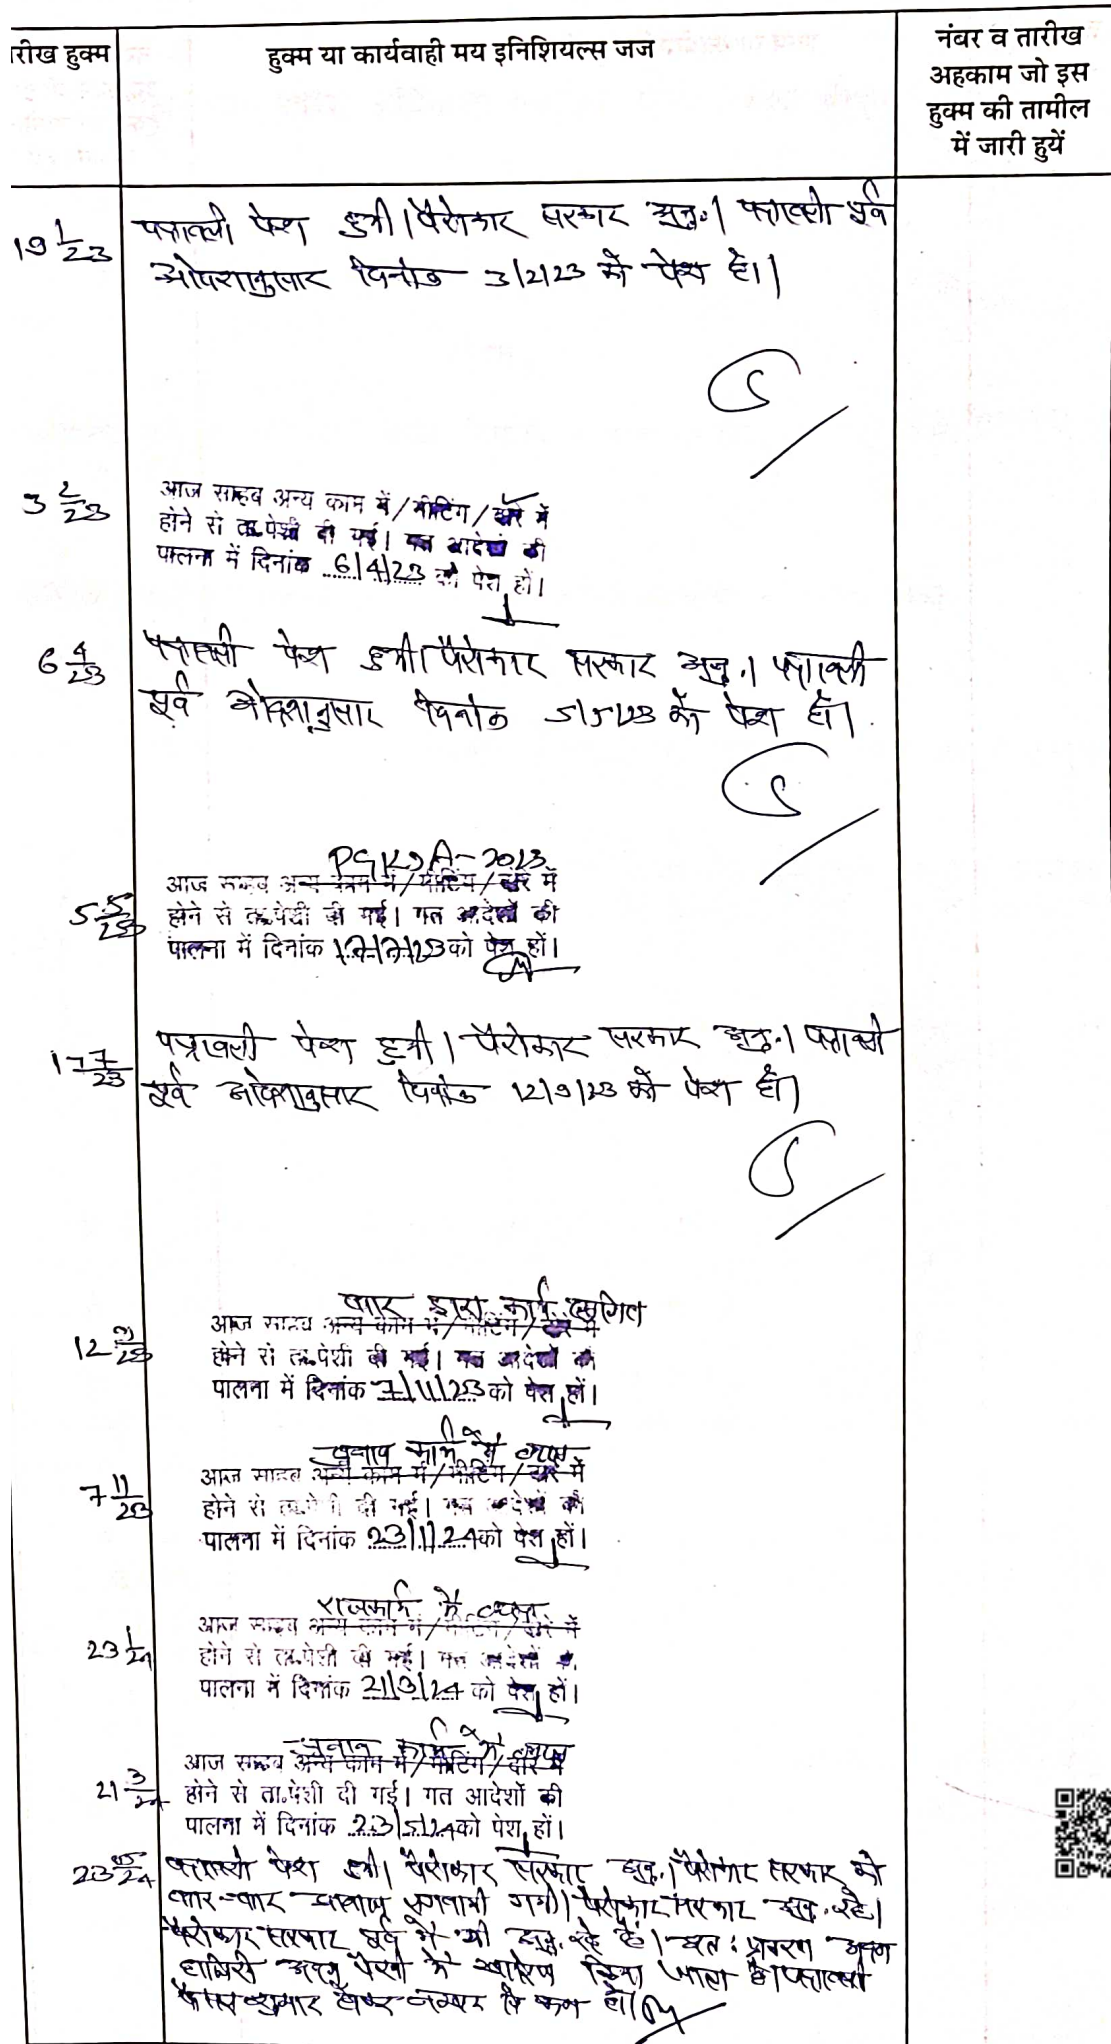 तारीख हुक्म
हुक्म या कार्यवाही मय इनिशियल्स जज
नंबर व तारीख
अहकाम जो इस
हुक्म की तामील
में जारी हुयें
19 1/23
पत्रावली पेश हुयी। पैरोकार सरकार अनु.। पत्रावली पूर्व
आदेशानुसार दिनांक 3/2/23 को पेश हो।
3 2/23
आज साहब अन्य काम में/मीटिंग/दौरे में
होने से ता.पेशी दी गई। गत आदेशों की
पालना में दिनांक 6/4/23 को पेश हों।
6 4/23
पत्रावली पेश हुयी। पैरोकार सरकार अनु.। पत्रावली
पूर्व आदेशानुसार दिनांक 5/5/23 को पेश हो।
5 5/23
आज साहब अन्य काम में/मीटिंग/दौरे में
होने से ता.पेशी दी गई। गत आदेशों की
पालना में दिनांक 17/7/23 को पेश हों।
17 7/23
पत्रावली पेश हुयी। पैरोकार सरकार अनु.। पत्रावली
पूर्व आदेशानुसार दिनांक 12/9/23 को पेश हो।
बार द्वारा कार्य स्थगित
12 9/23
आज साहब अन्य काम में/मीटिंग/दौरे में
होने से ता.पेशी दी गई। गत आदेशों की
पालना में दिनांक 7/11/23 को पेश हों।
चुनाव कार्य में व्यस्त
7 11/23
आज साहब अन्य काम में/मीटिंग/दौरे में
होने से ता.पेशी दी गई। गत आदेशों की
पालना में दिनांक 23/1/24 को पेश हों।
राजकार्य में व्यस्त
23 1/24
आज साहब अन्य काम में/मीटिंग/दौरे में
होने से ता.पेशी दी गई। गत आदेशों की
पालना में दिनांक 21/3/24 को पेश हों।
चुनाव कार्य में व्यस्त
21 3/24
आज साहब अन्य काम में/मीटिंग/दौरे में
होने से ता.पेशी दी गई। गत आदेशों की
पालना में दिनांक 23/5/24 को पेश हों।
23 5/24
पत्रावली पेश हुयी। पैरोकार सरकार अनु.। पैरोकार सरकार को
बार-बार आवाज लगवायी गयी। पैरोकार सरकार अनु. रहे।
पैरोकार सरकार पूर्व में भी अनु. रहे है। अतः प्रकरण अदम
हाजिरी अदम पैरवी में खारिज किया जाता है। पत्रावली
फैसल शुमार होकर नम्बर से कम हो।